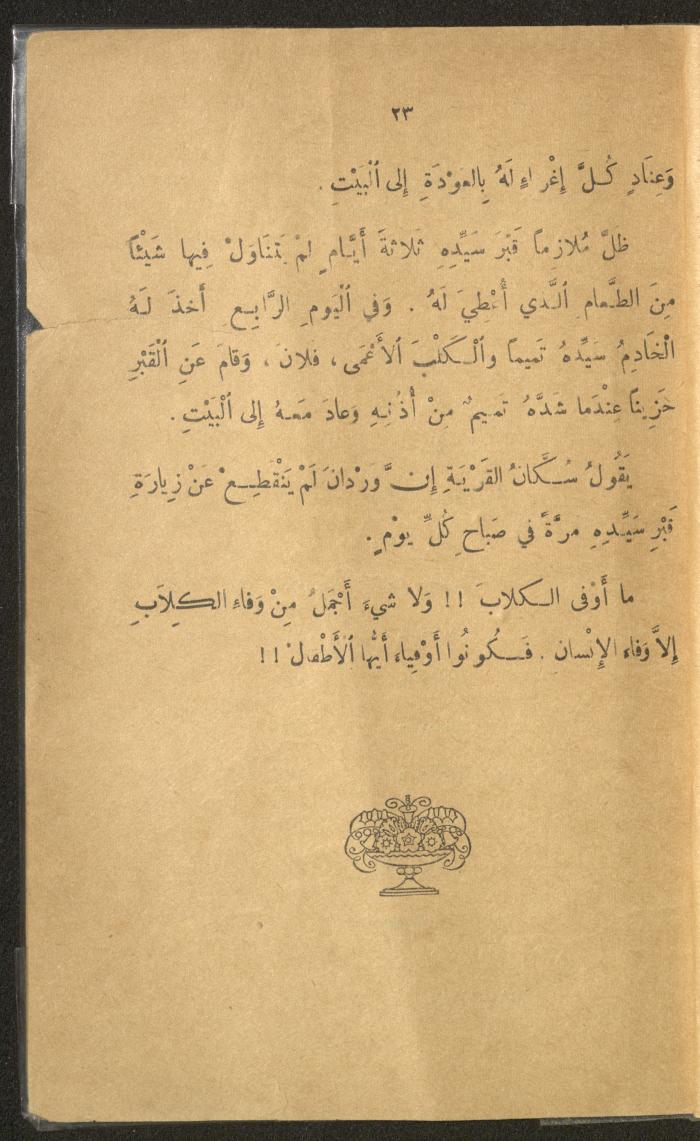 ٢٣
وَعِنَادٍ كُلَّ إِغْراءٍ لَهُ بِالعَوْدَةِ إِلى ٱلْبَيْتِ .
ظلَّ مُلازِماً قَبْرَ سَيِّدِهِ ثَلاثَةَ أَيَّامٍ لَمْ يَتَنَاوَلْ فِيها شَيْئًا
مِنَ الطَّعامِ ٱلَّذي أُعْطِيَ لَهُ . وَفي ٱلْيَومِ الرَّابِعِ أَخذَ لَهُ
ٱلْخَادِمُ سَيِّدَهُ تَميماً وٱلْكَلْبَ ٱلأَعْمَى ، فَلانَ ، وَقامَ عَنِ ٱلْقَبْرِ
حَزِيناً عِنْدَما شَدَّهُ تَميمٌ مِنْ أُذُنِهِ وَعادَ مَعَهُ إِلى ٱلْبَيْتِ .
يَقُولُ سُكَّانُ القَرْيَةِ إِنَّ وَرْدانَ لَمْ يَنْقَطِعْ عَنْ زِيارَةِ
قَبْرِ سَيِّدِهِ مَرَّةً في صَباحِ كُلِّ يوْمٍ .
ما أَوْفى الكلابَ !! وَلا شيءَ أَجْمَلُ مِنْ وَفاءِ الكِلابِ
إِلاَّ وَفاء الإِنْسانِ . فَكُونُوا أَوْفِياءَ أَيُّها ٱلأَطْفالْ !!